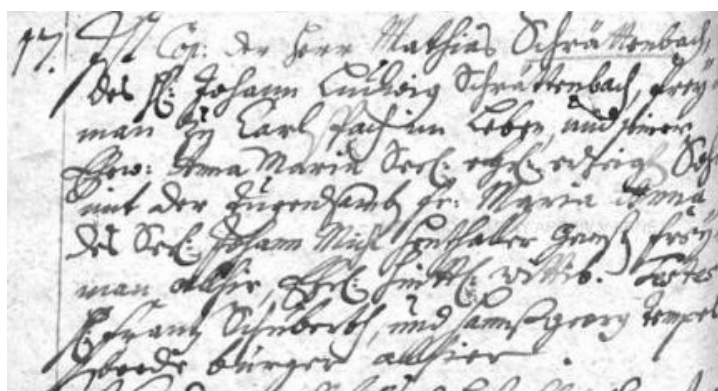 17. Ist Cop: der Herr Mathias Schrättenbach,
des H: Johann Ludwig Schrättenbach, frey
man zu Carl im Leben, und seiner
Ehew: Anna Maria Seel: Sohn
mit der Tugendsamb fr: Maria Anna
des Seel: Johann Mich: frey
man alhir, Ehel: hintl: wittib. Testes
H: Frantz Schuberth, und Hannß georg Tempel
beede bürger allhier.